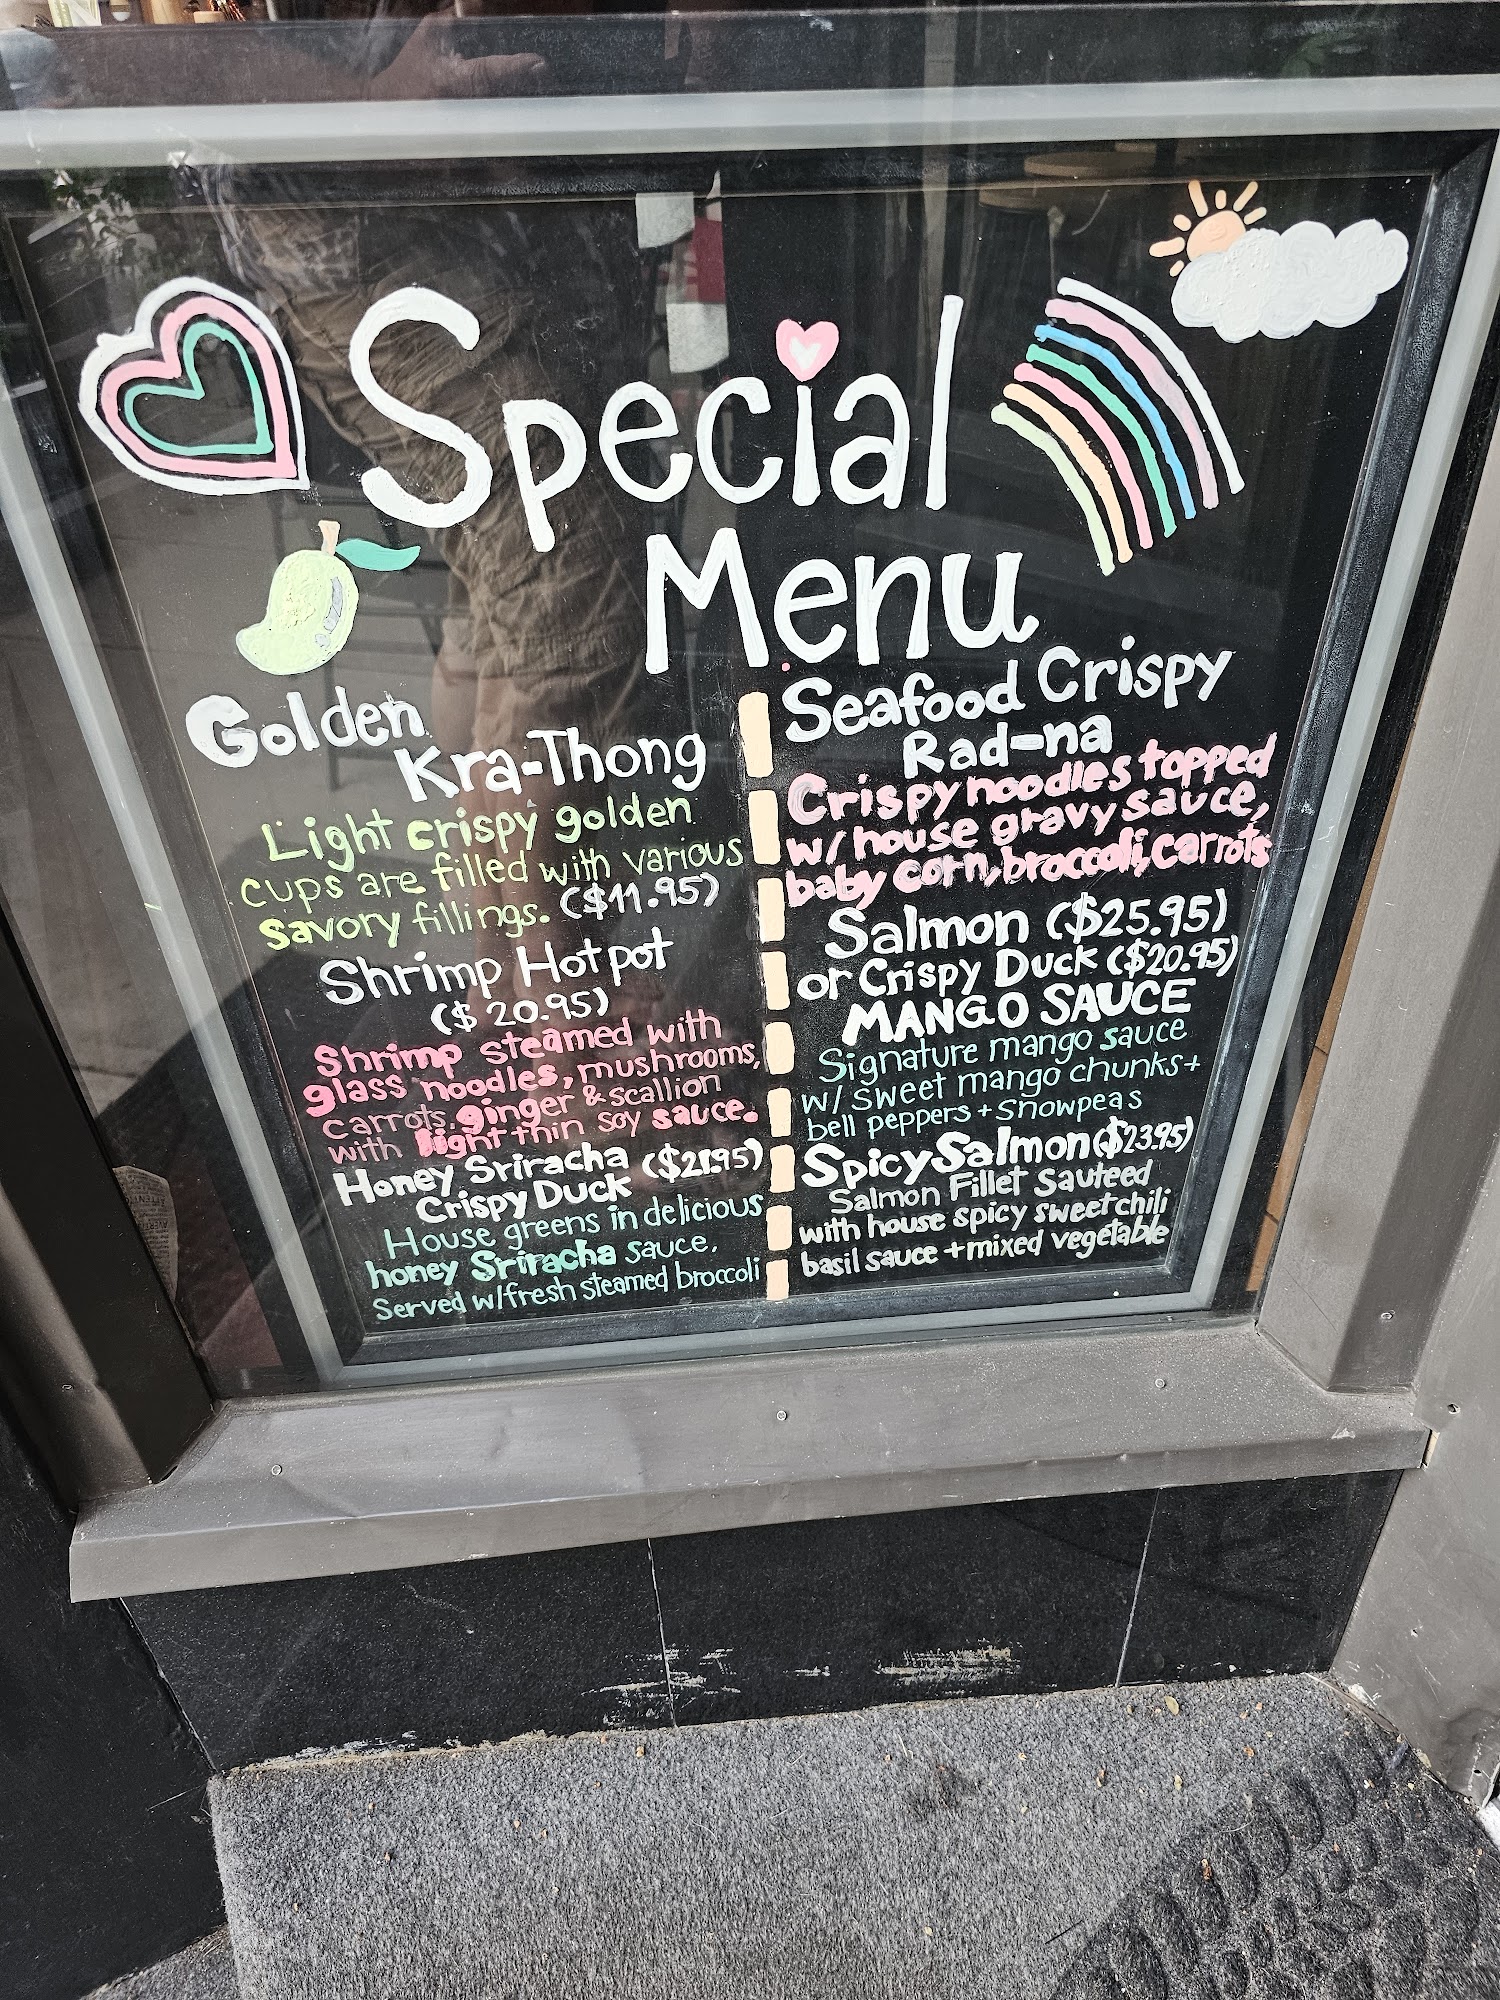 Special
Menu
Golden
Kra-Thong
Light crispy golden
cups are filled with various
savory fillings. ($11.95)
Shrimp Hot pot
($20.95)
Shrimp steamed with
glass noodles, mushrooms,
carrots, ginger & scallion
with light thin soy sauce.
Honey Sriracha ($21.95)
Crispy Duck
House greens in delicious
honey Sriracha sauce,
Served w/fresh steamed broccoli
Seafood Crispy
Rad-na
Crispy noodles topped
w/ house gravy sauce,
baby corn, broccoli, carrots
Salmon ($25.95)
or Crispy Duck ($20.95)
MANGO SAUCE
Signature mango sauce
w/ sweet mango chunks +
bell peppers + snowpeas
Spicy Salmon ($23.95)
Salmon Fillet Sauteed
with house spicy sweet chili
basil sauce + mixed vegetable